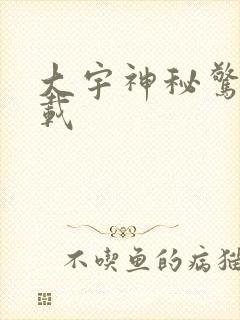 大宇神秘驚
載
不喫鱼的病猫